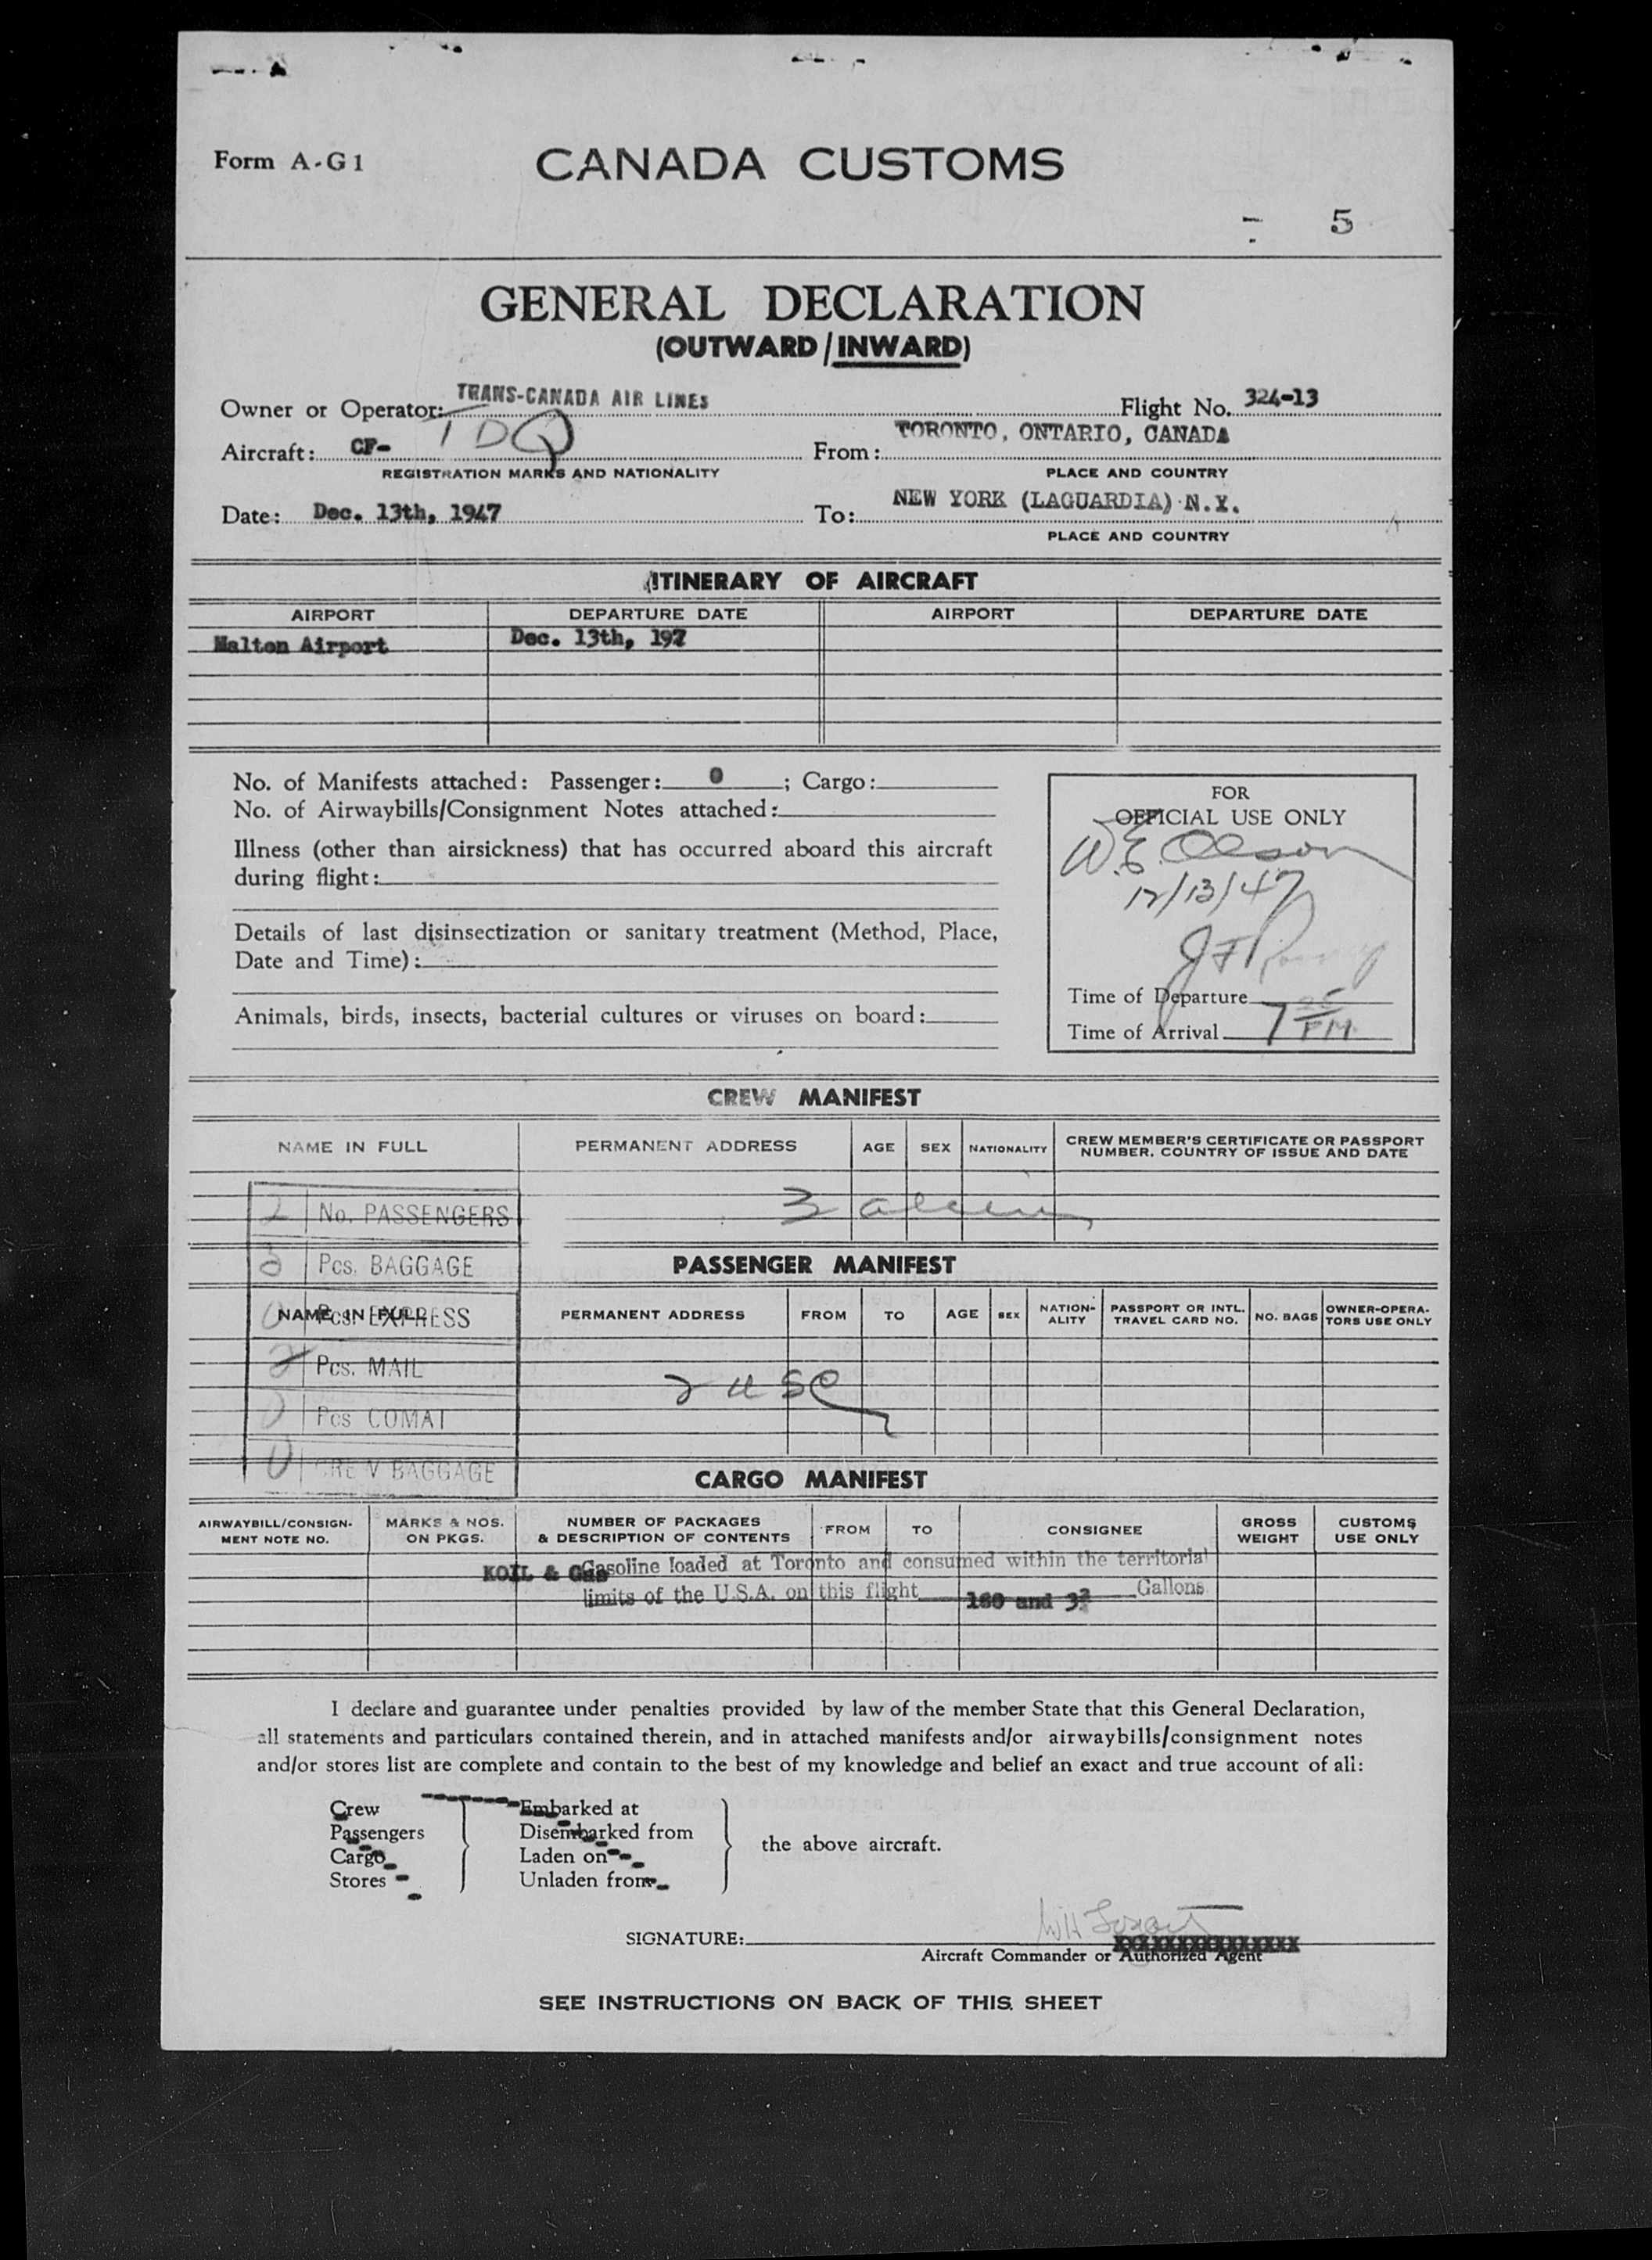 Form A-G1
CANADA CUSTOMS
5
GENERAL DECLARATION
(OUTWARD/INWARD)
Owner or Operator: TRANS-CANADA AIR LINES Flight No. 324-13
Aircraft: CF- TDQ From: TORONTO, ONTARIO, CANADA
REGISTRATION MARKS AND NATIONALITY PLACE AND COUNTRY
Date: Dec. 13th, 1947 To: NEW YORK (LAGUARDIA) N.Y.
PLACE AND COUNTRY
ITINERARY OF AIRCRAFT
AIRPORT DEPARTURE DATE AIRPORT DEPARTURE DATE
Malton Airport Dec. 13th, 197
No. of Manifests attached: Passenger: 0 ; Cargo:
No. of Airwaybills/Consignment Notes attached:
Illness (other than airsickness) that has occurred aboard this aircraft
during flight:
Details of last disinsectization or sanitary treatment (Method, Place,
Date and Time):
Animals, birds, insects, bacterial cultures or viruses on board:
FOR
OFFICIAL USE ONLY
W.E. Olson
12/13/47
Time of Departure
Time of Arrival 7 25 PM
CREW MANIFEST
NAME IN FULL PERMANENT ADDRESS AGE SEX NATIONALITY CREW MEMBER'S CERTIFICATE OR PASSPORT NUMBER, COUNTRY OF ISSUE AND DATE
2 No. PASSENGERS
3
3 Pcs. BAGGAGE
PASSENGER MANIFEST
0 Pcs. EXPRESS
NAME IN FULL PERMANENT ADDRESS FROM TO AGE SEX NATION-ALITY PASSPORT OR INTL. TRAVEL CARD NO. NO. BAGS OWNER-OPERA-TORS USE ONLY
2 Pcs. MAIL
2 USC
0 Pcs COMAT
0 CREW BAGGAGE
CARGO MANIFEST
AIRWAYBILL/CONSIGN-MENT NOTE NO. MARKS & NOS. ON PKGS. NUMBER OF PACKAGES & DESCRIPTION OF CONTENTS FROM TO CONSIGNEE GROSS WEIGHT CUSTOMS USE ONLY
KOIL & Gas Gasoline loaded at Toronto and consumed within the territorial
limits of the U.S.A. on this flight 180 and 3 Gallons
I declare and guarantee under penalties provided by law of the member State that this General Declaration,
all statements and particulars contained therein, and in attached manifests and/or airwaybills/consignment notes
and/or stores list are complete and contain to the best of my knowledge and belief an exact and true account of all:
Crew Embarked at
Passengers Disembarked from
Cargo Laden on the above aircraft.
Stores Unladen from
SIGNATURE:
Aircraft Commander or Authorized Agent
SEE INSTRUCTIONS ON BACK OF THIS SHEET